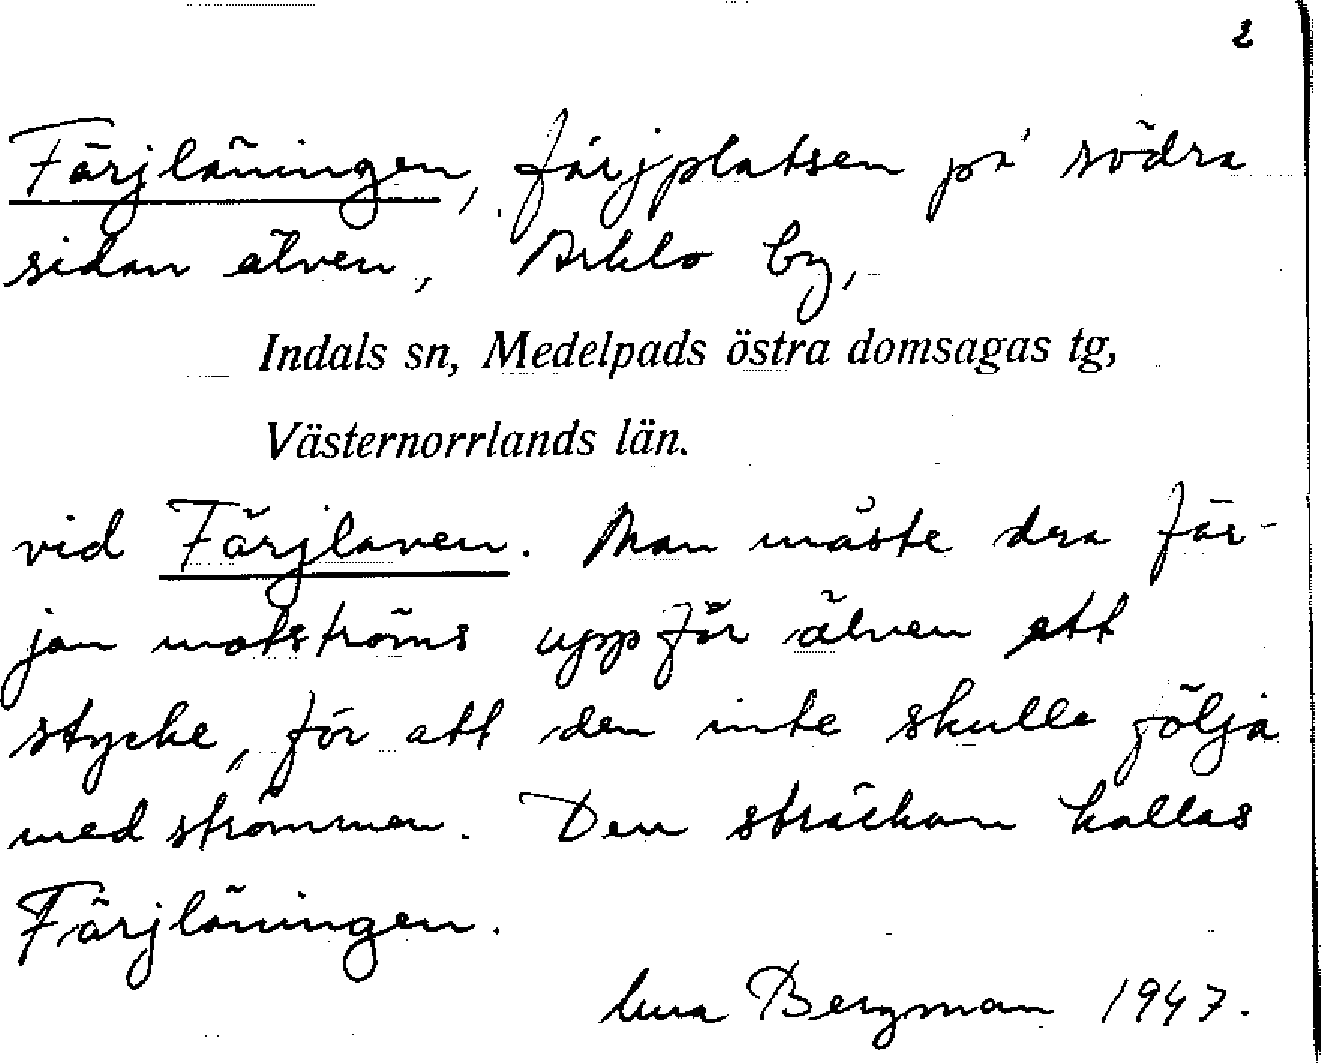 2
Färjläningen, färjplatsen på södra
sidan älven, Arklo by,
Indals sn, Medelpads östra domsagas tg,
Västernorrlands län.
vid Färjlaven. Man måste dra fär-
jan motströms uppför älven ett
stycke, för att den inte skulle följa
med strömmen. Den sträckan kallas
Färjläningen.
Bergman 1947.